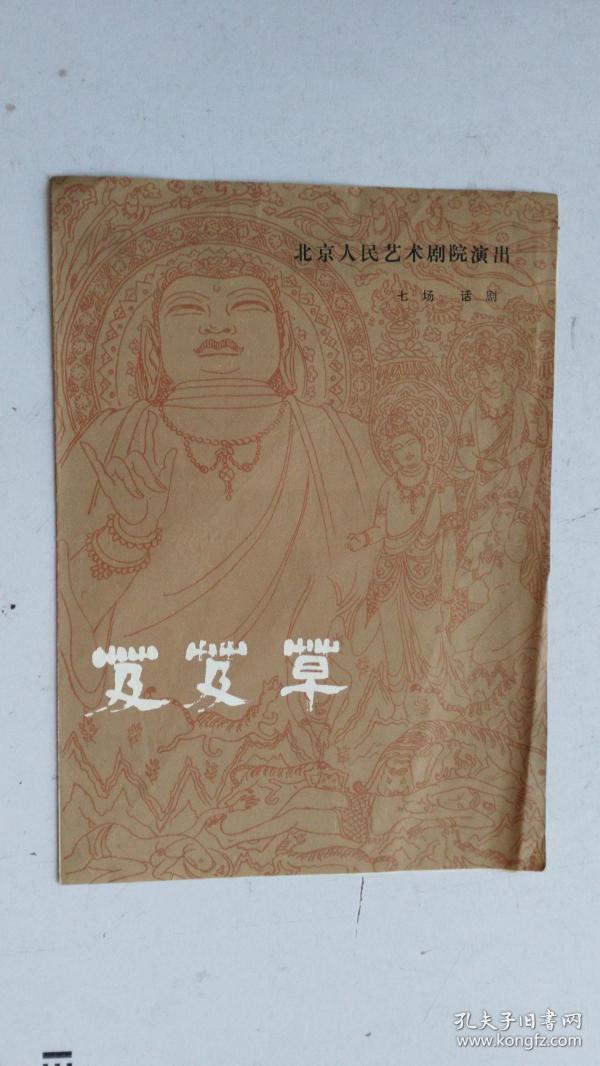 北京人民艺术剧院演出
七场 话剧
芨芨草
孔夫子旧书网
www.kongfz.com